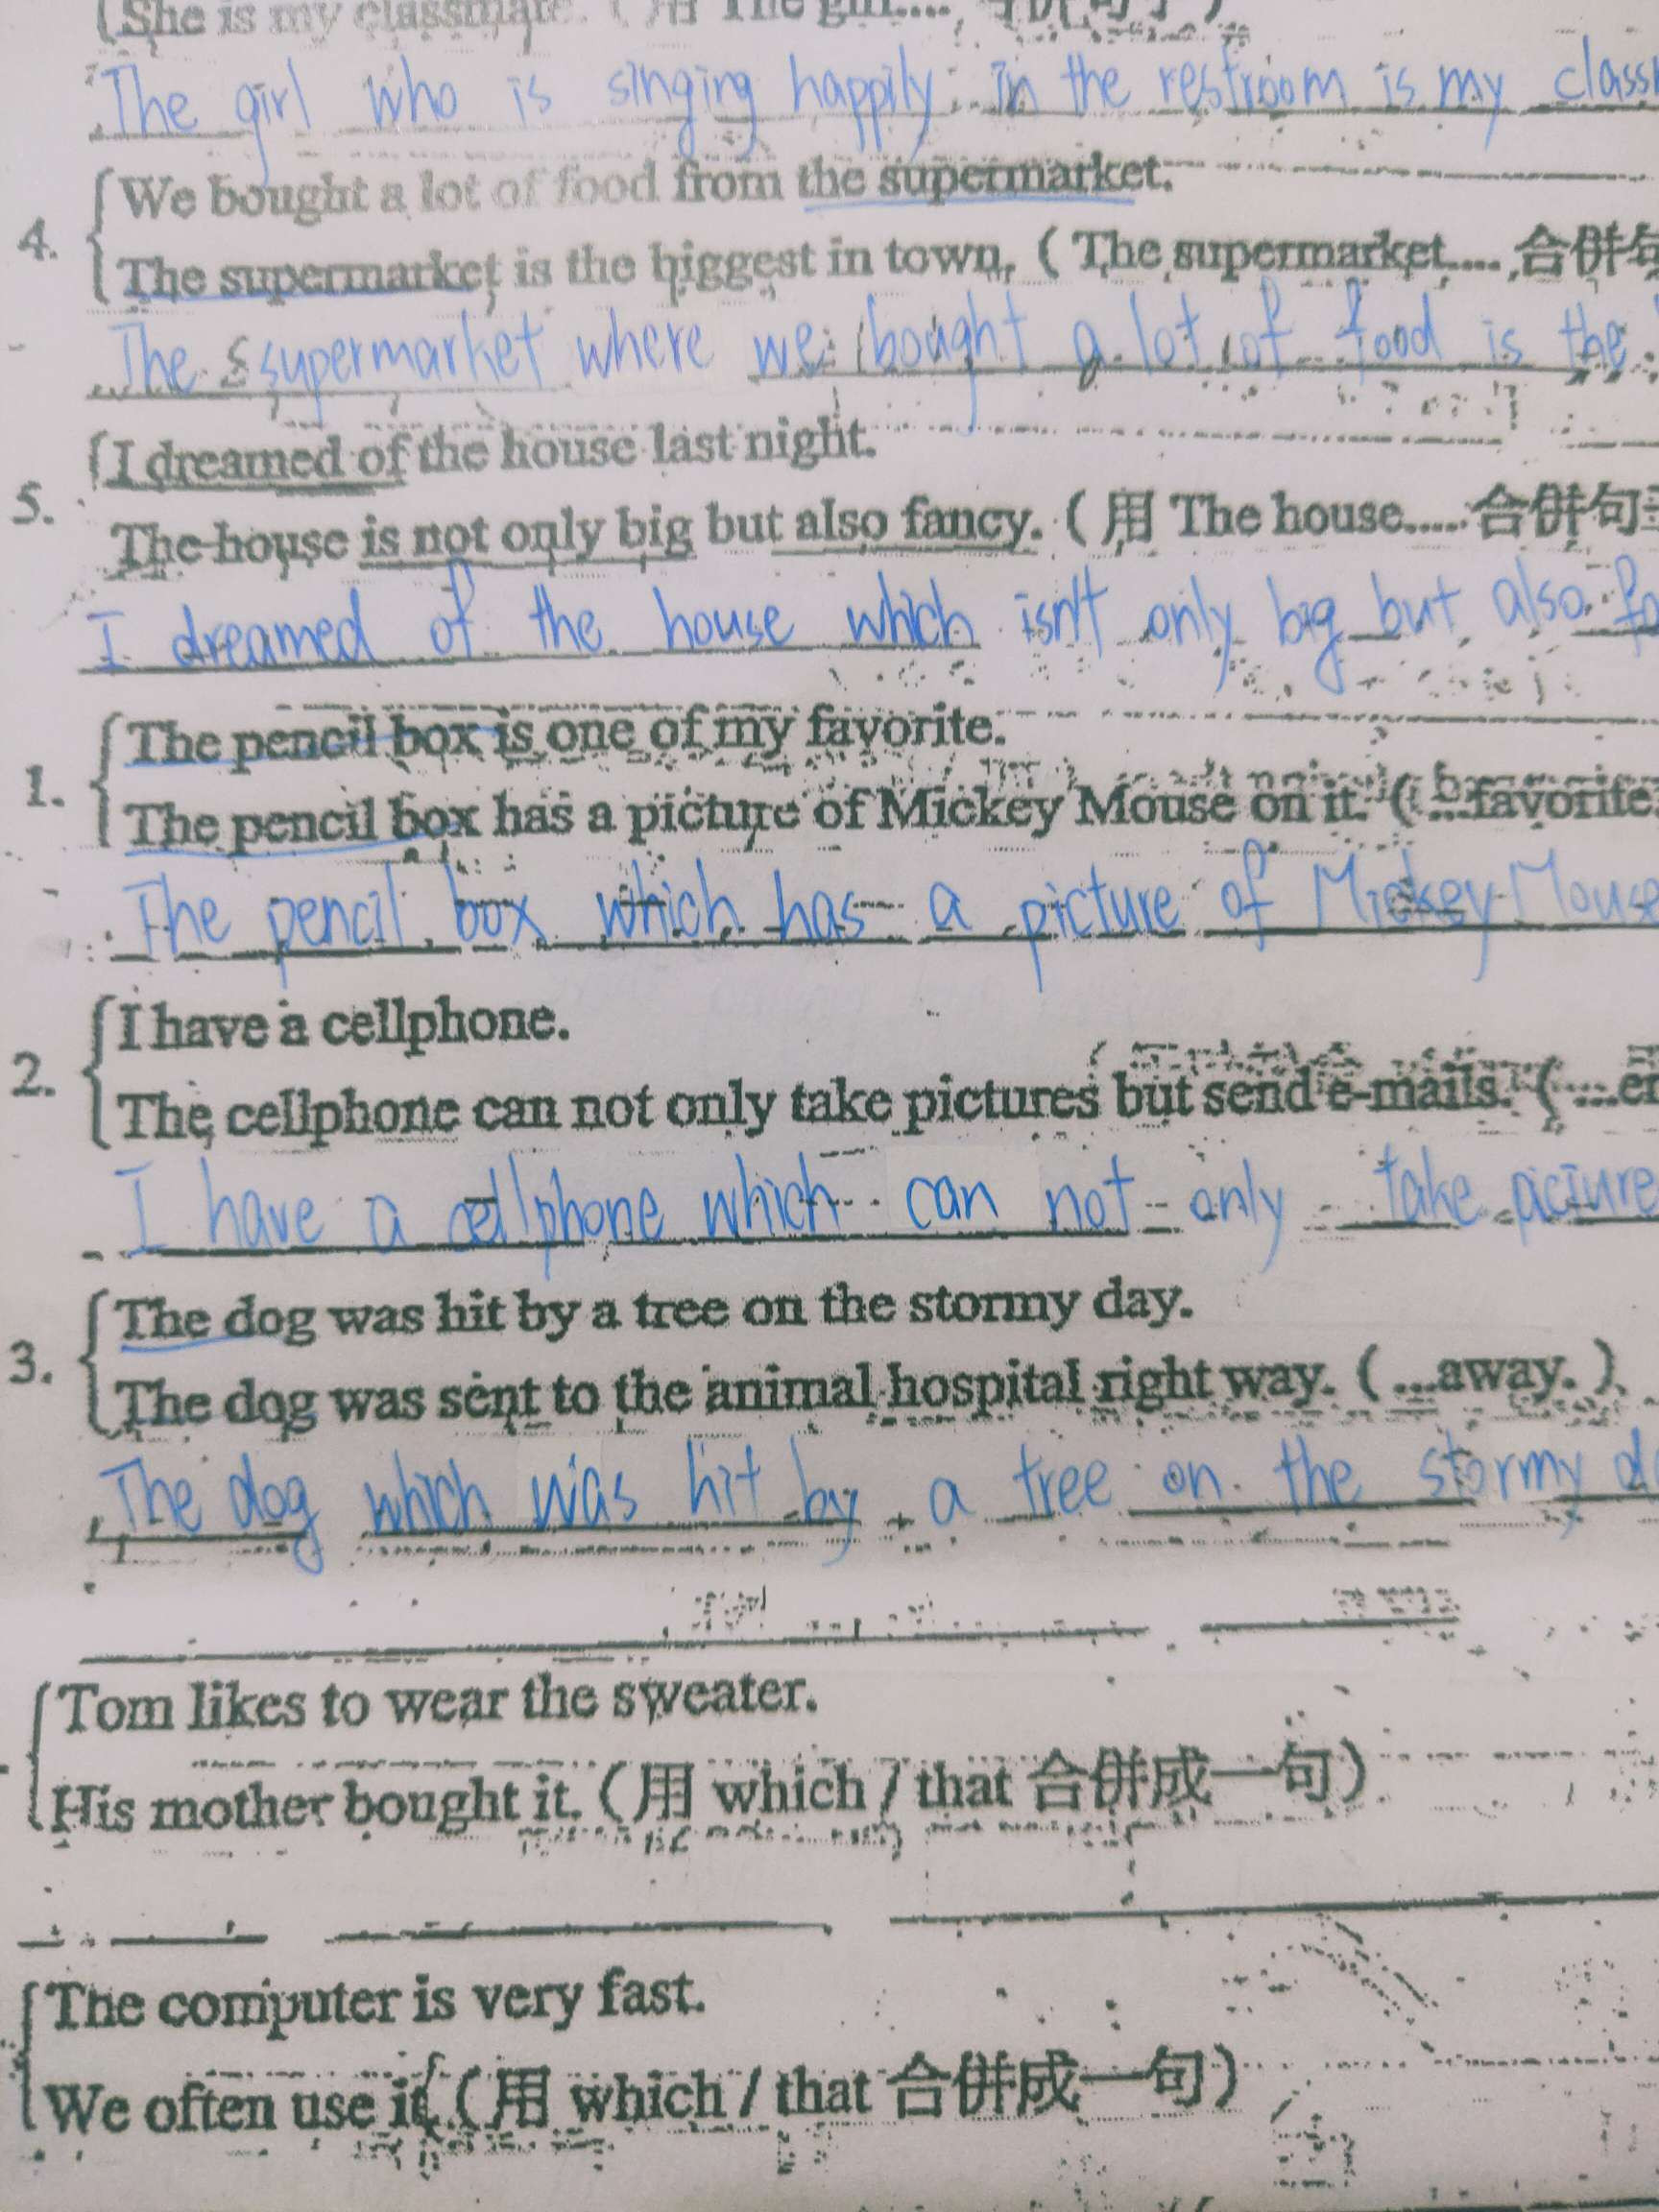 (She is my classmate. (用 The girl....,
The girl who is singing happily in the restroom is my
We bought a lot of food from the supermarket.
4.
The supermarket is the biggest in town. ( The supermarket.... 合併
The supermarket where we bought a lot of food is the
I dreamed of the house last night.
5.
The house is not only big but also fancy. ( 用 The house..... 合併句
I dreamed of the house which isn't only big but also
The pencil box is one of my favorite.
1.
The pencil box has a picture of Mickey Mouse on it. ( ...favorite.
The pencil box which has a picture of Mickey Mouse
I have a cellphone.
2.
The cellphone can not only take pictures but send e-mails. ( ...
I have a cellphone which can not only take picture
The dog was hit by a tree on the stormy day.
3.
The dog was sent to the animal hospital right way. ( ...away. )
The dog which was hit by a tree on the stormy
Tom likes to wear the sweater.
His mother bought it. ( 用 which / that 合併成一句)
The computer is very fast.
We often use it. ( 用 which / that 合併成一句)